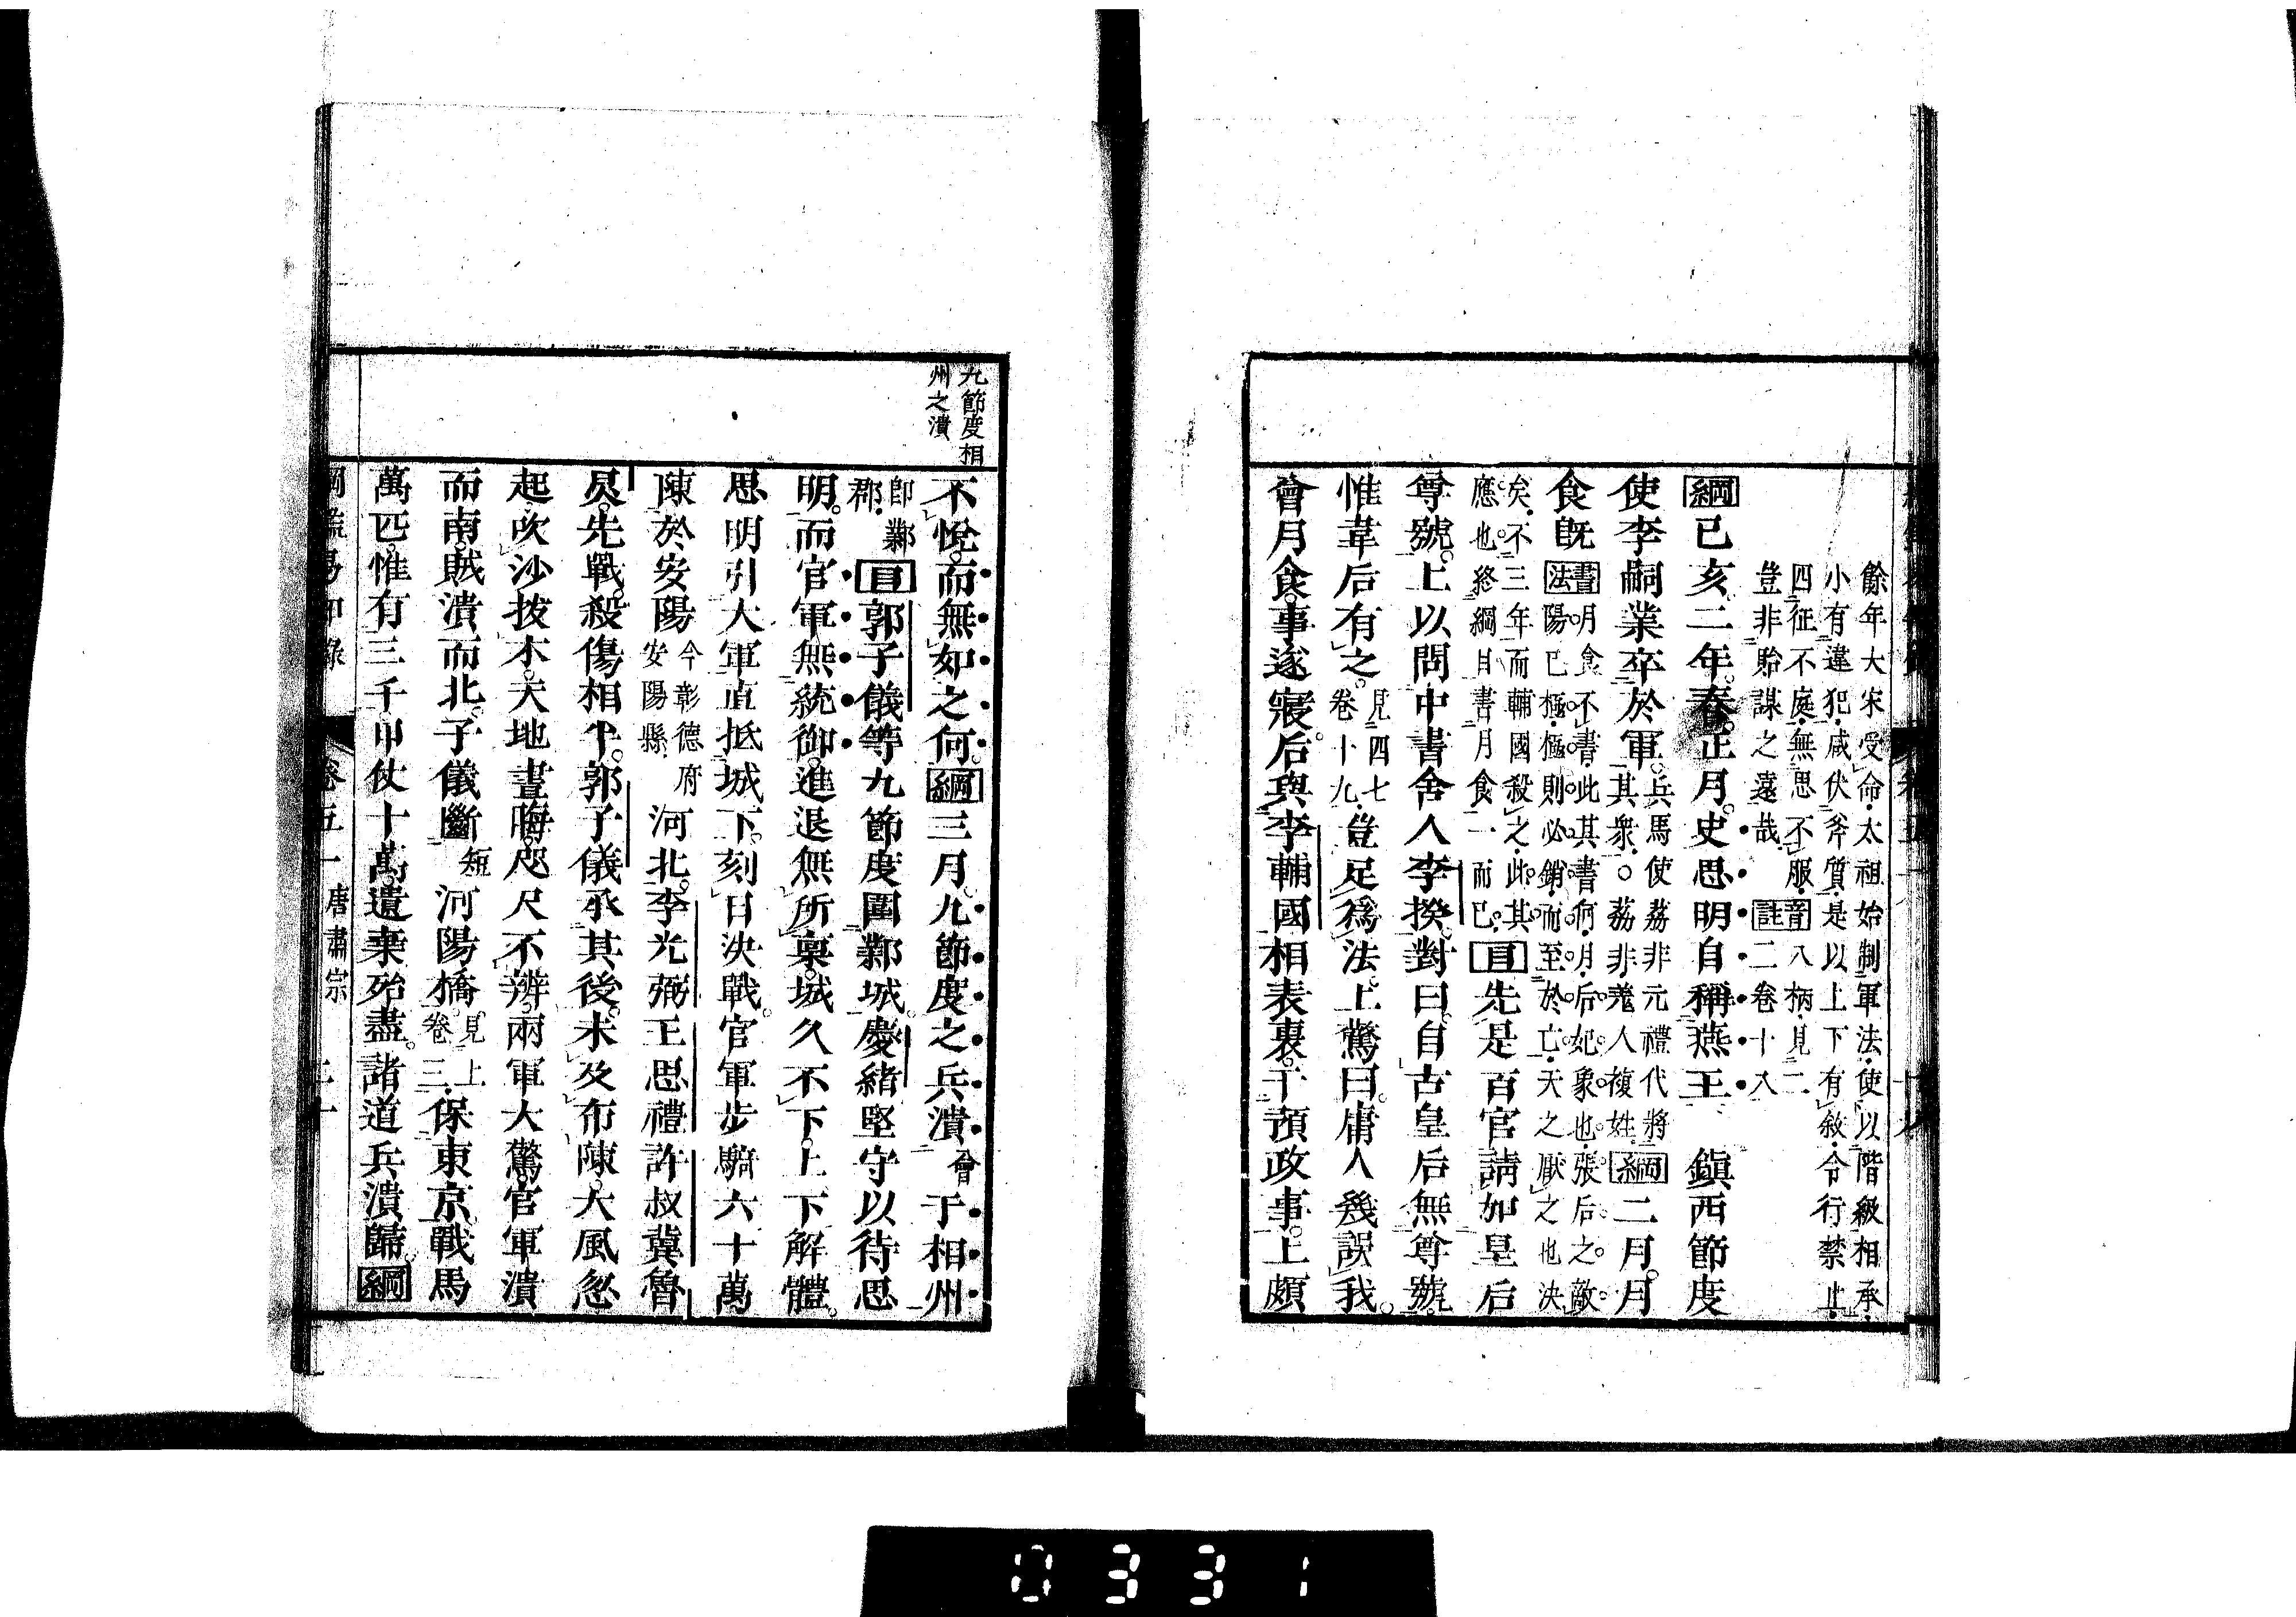 餘年大宋受命太祖始制軍法使以階級相承
小有違犯咸伏斧質是以上下有敘令行禁止
四征不庭無思不服音八柄見二
豈非貽謀之遠哉註二卷十八
綱已亥二年春正月史思明自稱燕王 鎭西節度
使李嗣業卒於軍兵馬使荔非元禮代將
其衆○荔非羌人複姓綱二月月
食既書明月食不書此其書何月后妃象也張后之敵
法陽已極極則必銷而至於亡天之厭之也決
矣不三年而輔國殺之此其
應也終綱目書月食一而已目先是百官請加皇后
尊號上以問中書舍人李揆對曰自古皇后無尊號
惟韋后有之見四七
卷十九豈足爲法上驚曰庸人幾誤我
會月食事遂寢后與李輔國相表裏干預政事上頗
九節度相
州之潰
不悅而無如之何綱三月九節度之兵潰會于相州
卽鄴
郡目郭子儀等九節度圍鄴城慶緒堅守以待思
明而官軍無統御進退無所稟城久不下上下解體
思明引大軍直抵城下刻日決戰官軍步騎六十萬
陳於安陽今彰德府
安陽縣河北李光弼王思禮許叔冀魯
炅先戰殺傷相半郭子儀承其後未及布陳大風忽
起吹沙拔木天地晝晦咫尺不辨兩軍大驚官軍潰
而南賊潰而北子儀斷短河陽橋見上
卷三保東京戰馬
萬匹惟有三千甲仗十萬遺棄殆盡諸道兵潰歸綱
卷五一 唐肅宗 二十
0331